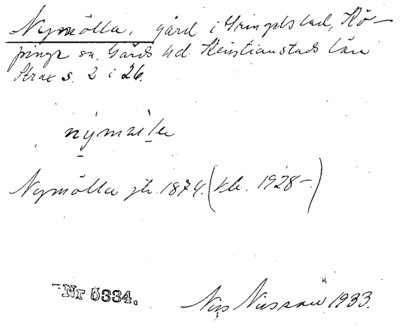 Nymölla, gård i Gringelstad, Kö-
pinge sn. Gärds hd. Kristianstads län
Strax s. 2 i 26.
Nymölla jb. 1874. (kb. 1928-.)
Nr 5334.
Nils 1933.